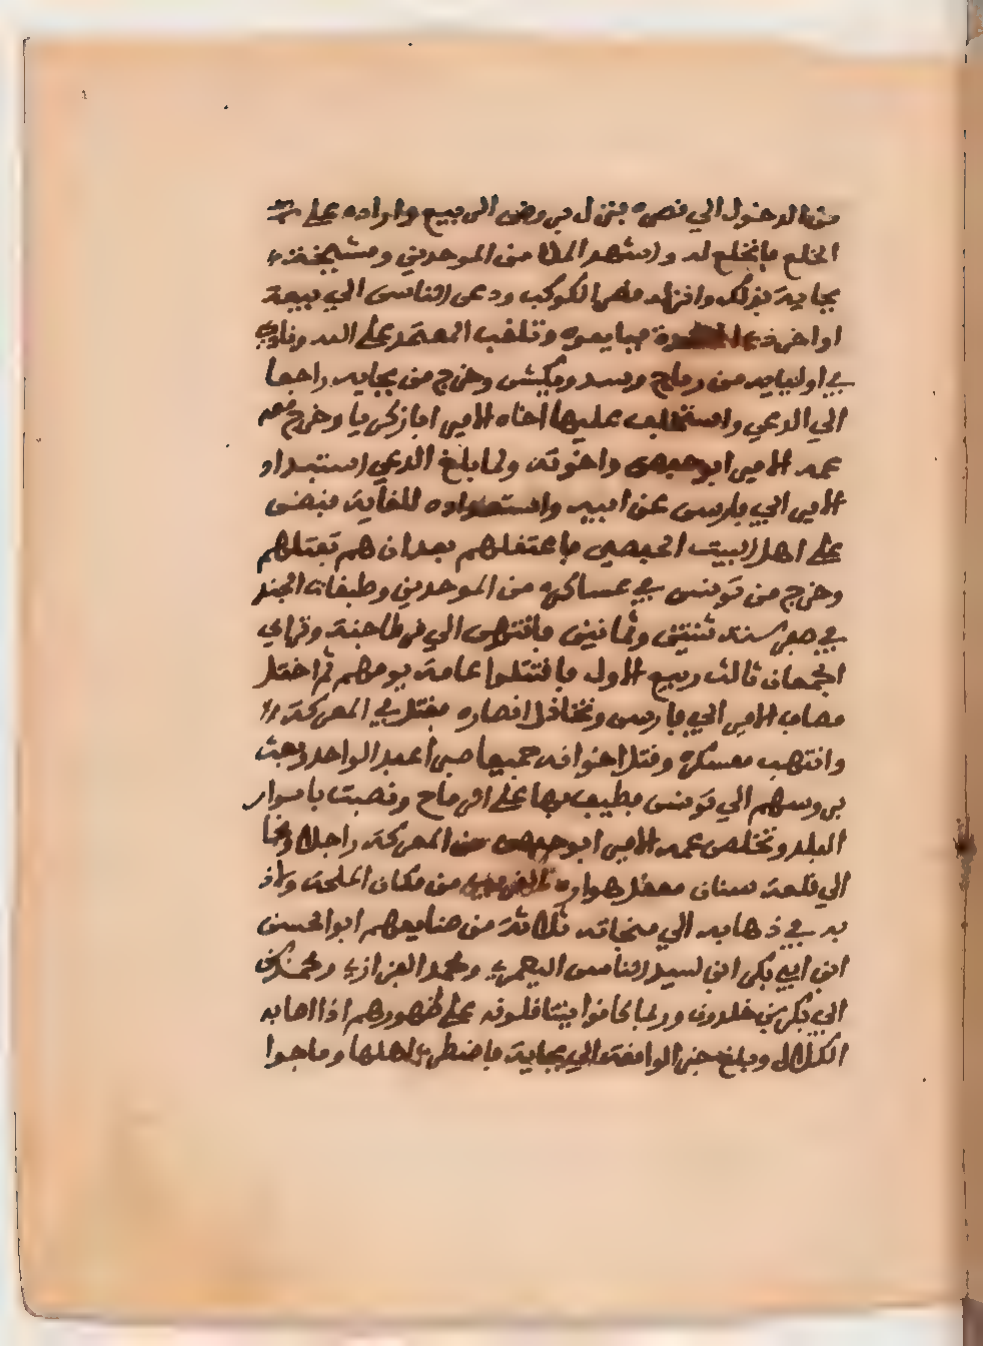 من الدخول الي قصره بنزل بروض الربيع واراده علي
الخلع فانخلع له واشهد الملا من الموحدين ومشيخة
بجاية بذلك وانزله قصر الكوكب ودعي الناس الي بيعة
اواخر ذي القعدة فبايعوه وتلقب المعتمد علي الله ونادي
في اوليايه من رياح وسدويكش وخرج من بجايه زاحفا
الي الدعي واستخلف عليها اخاه الامير ابا زكريا وخرج معه
عمه الامير ابو حفص واخوته ولما بلغ الدعي استبداد
الامير ابي فارس عن ابيه واستعداده للقايه قبض
علي اهل البيت الحفصي فاعتقلهم بعد ان هم بقتلهم
وخرج من تونس في عساكره من الموحدين وطبقات الجند
في صفر سنة ثنتين وثمانين فانتهى الي مرماجنة وتراي
الجمعان ثالث ربيع الاول فاقتتلوا عامة يومهم ثم اختل
مصاف الامير ابي فارس وتخاذل انصاره فقتل في المعركة
وانتهب معسكره وقتل اخوانه جميعا صبرا عبد الواحد وبعث
بروسهم الي تونس فطيف بها علي الرماح ونصبت باسوار
البلد وتخلص عمه الامير ابو حفص من المعركة راجلا ونجا
الي قلعة سنان معقل هواره القريب من مكان الملحمة ولاذ
به في ذهابه الي منجاته ثلاثة من صنايعهم ابو الحسن
ابن ابي بكر ابن سيد الناس اليعمري ومحمد الفزازي ومحمد بن
ابي بكر بن خلدون وربما كانوا يتناقلونه علي ظهورهم اذا اصابه
الكلال وبلغ خبر الواقعة الي بجاية فاضطرب اهلها وماجوا